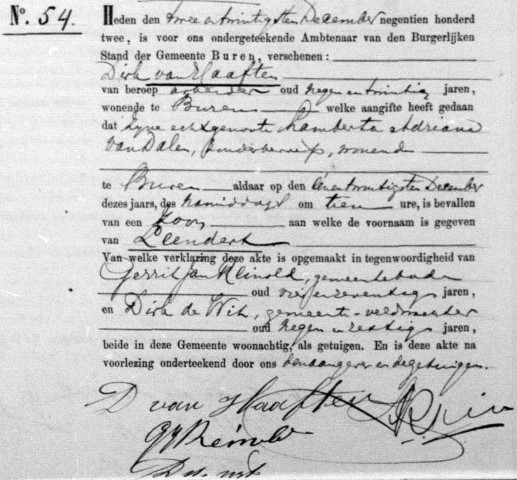 No. 54.
Heden den twee en twintigsten December negentien honderd
twee, is voor ons ondergeteekende Ambtenaar van den Burgerlijken
Stand der Gemeente Buren, verschenen:
Dirk van Haaften
van beroep arbeider oud negen en twintig jaren,
wonende te Buren welke aangifte heeft gedaan
dat zyne echtgenoote Lamberta Adriana
van Dalen, zonder beroep, wonend
te Buren aldaar op den een en twintigsten December
dezes jaars, des namiddags om tien ure, is bevallen
van een zoon aan welke de voornaam is gegeven
van Leendert
Van welke verklaring deze akte is opgemaakt in tegenwoordigheid van
Gerrit Jan Reinold, gemeentebode
oud vier en zeventig jaren,
en Dirk de Wit, gemeente-veldwachter
oud negen en zestig jaren,
beide in deze Gemeente woonachtig, als getuigen. En is deze akte na
voorlezing onderteekend door ons den aangever en de getuigen.
D van Haaften